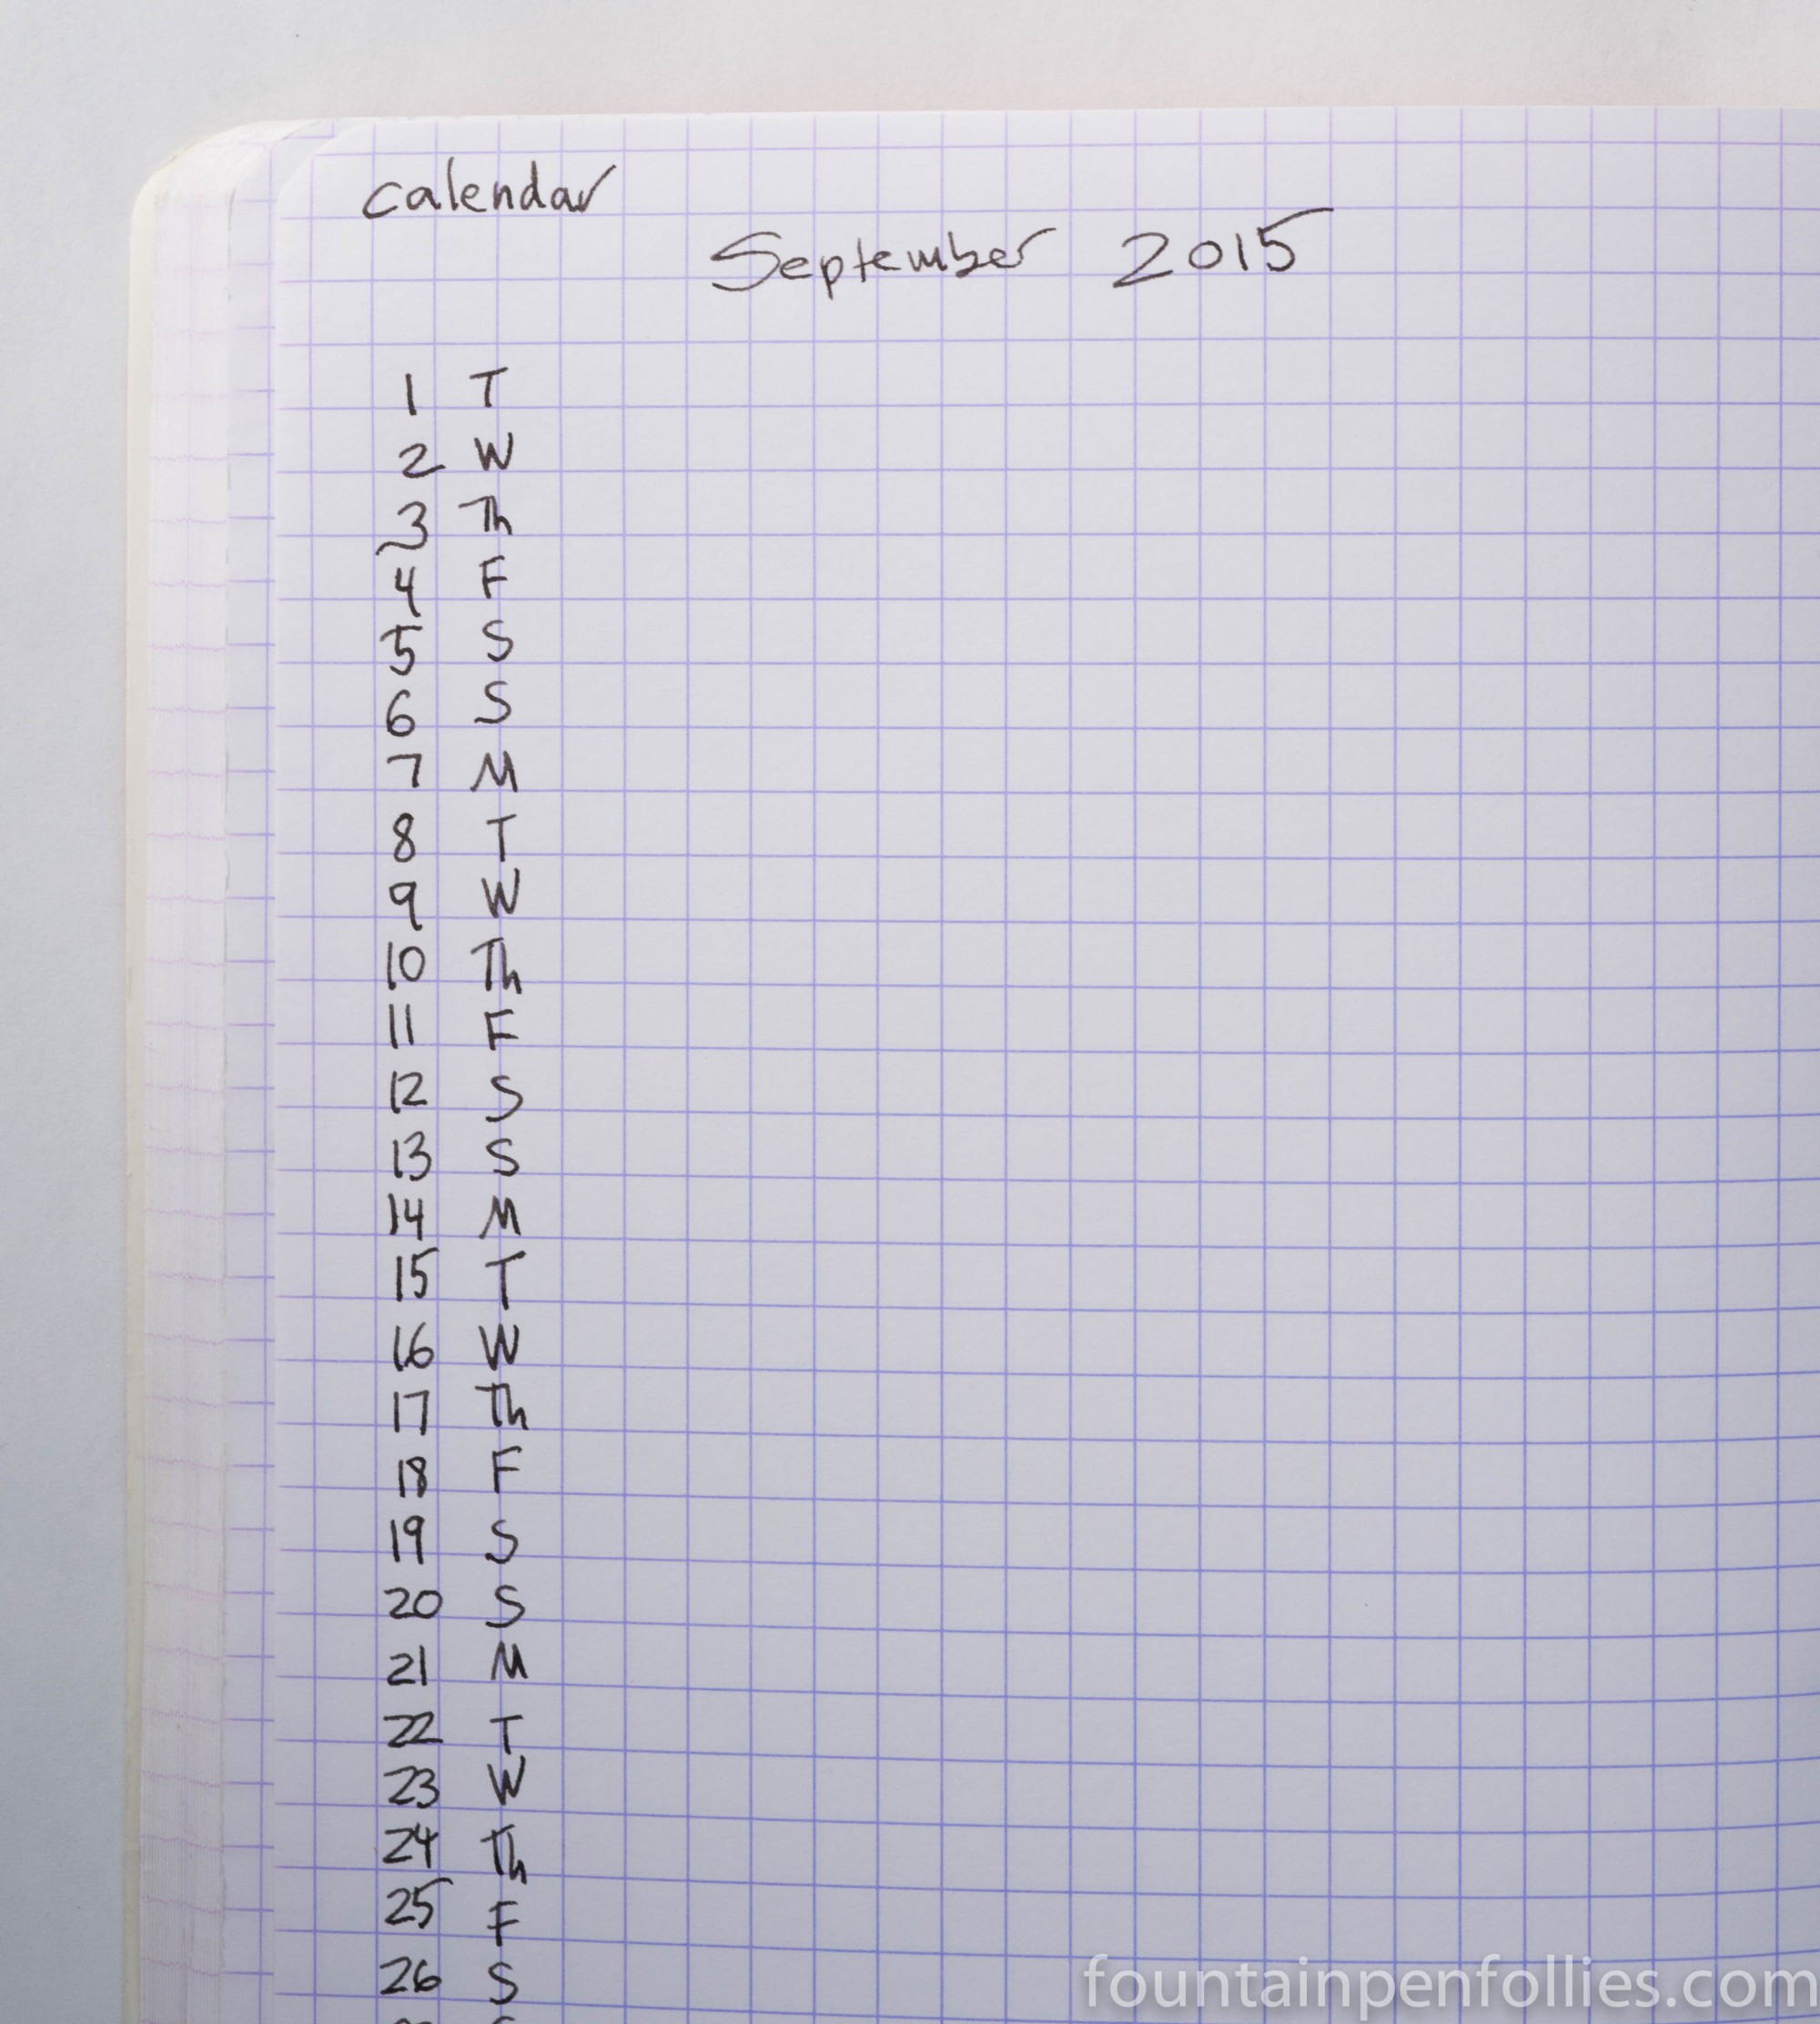 calendar
September 2015
1 T
2 W
3 Th
4 F
5 S
6 S
7 M
8 T
9 W
10 Th
11 F
12 S
13 S
14 M
15 T
16 W
17 Th
18 F
19 S
20 S
21 M
22 T
23 W
24 Th
25 F
26 S
fountainpenfollies.com